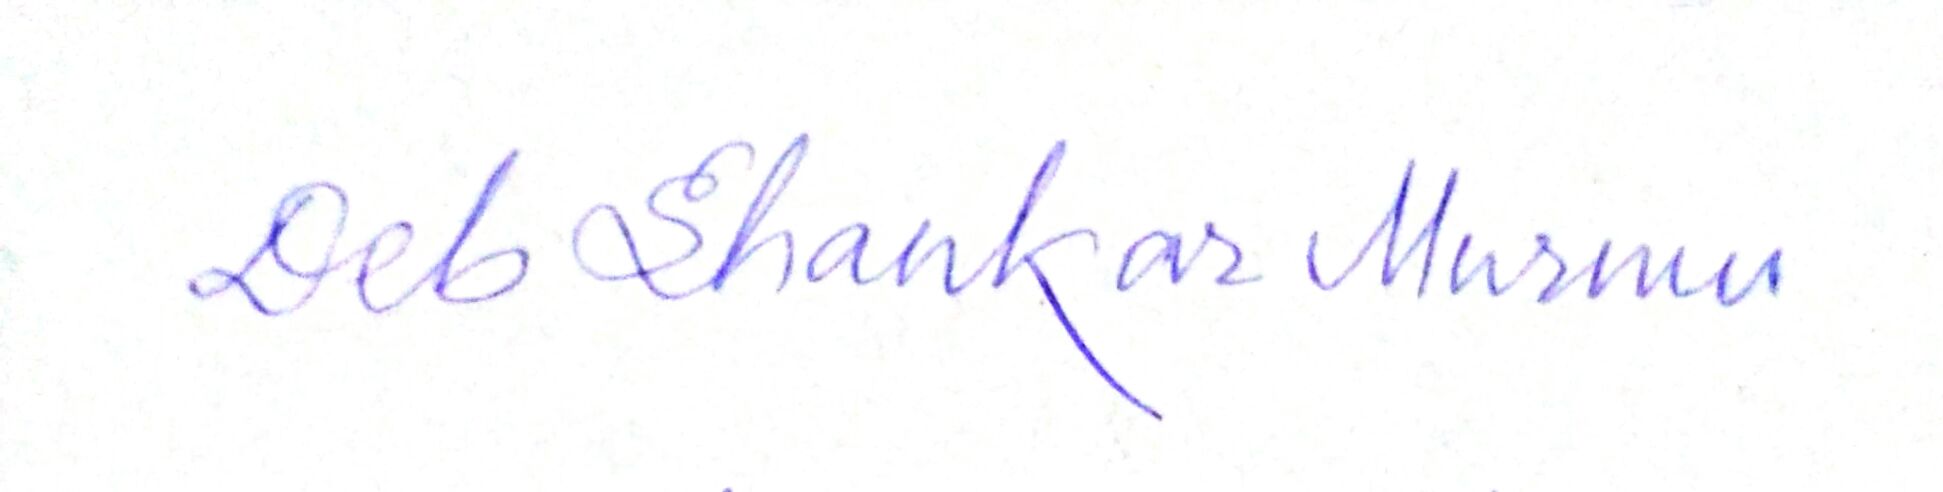 Deb Shankar Murmu